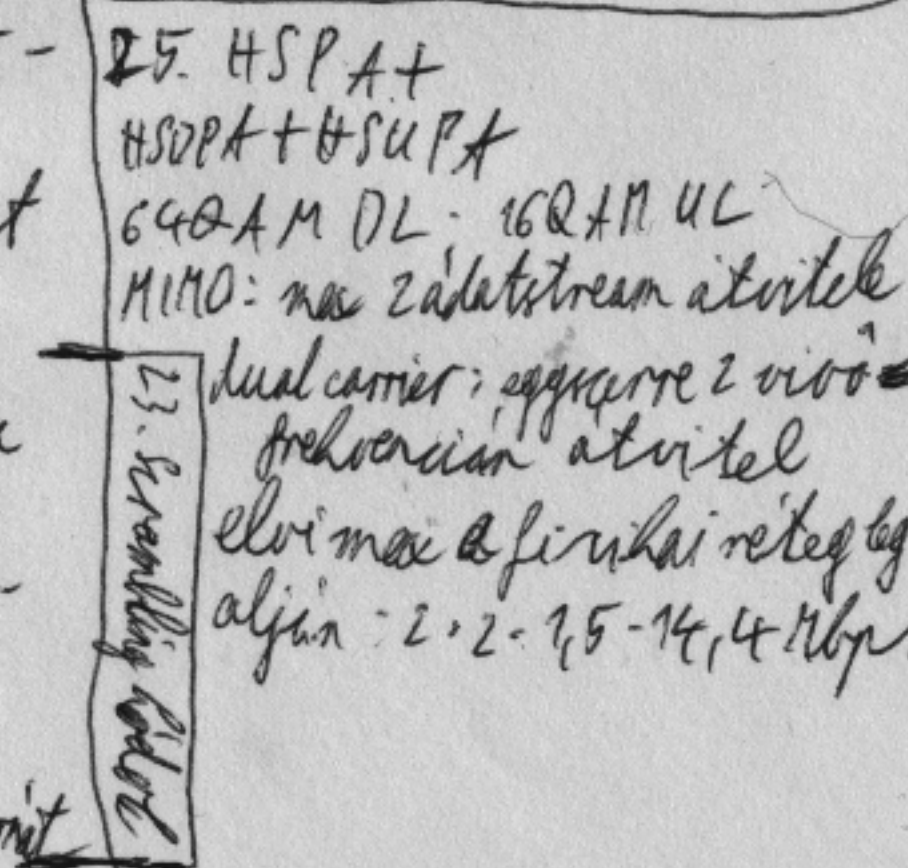 25. HSPA+
HSDPA+HSUPA
64QAM DL. 16QAM UL
MIMO: max 2 adatstream átvitele
dual carrier: egyszerre 2 vivő
frekvencián átvitel
elvi max a fizikai réteg leg
alján: 2·2·1,5·14,4 Mbp
23. Scrambling kódok